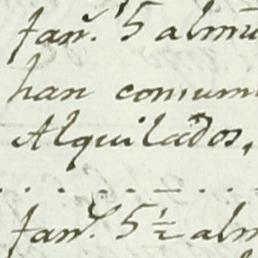 fan.ª 5 almu
han consum
Alquilados,
fan.ª 5½ alm